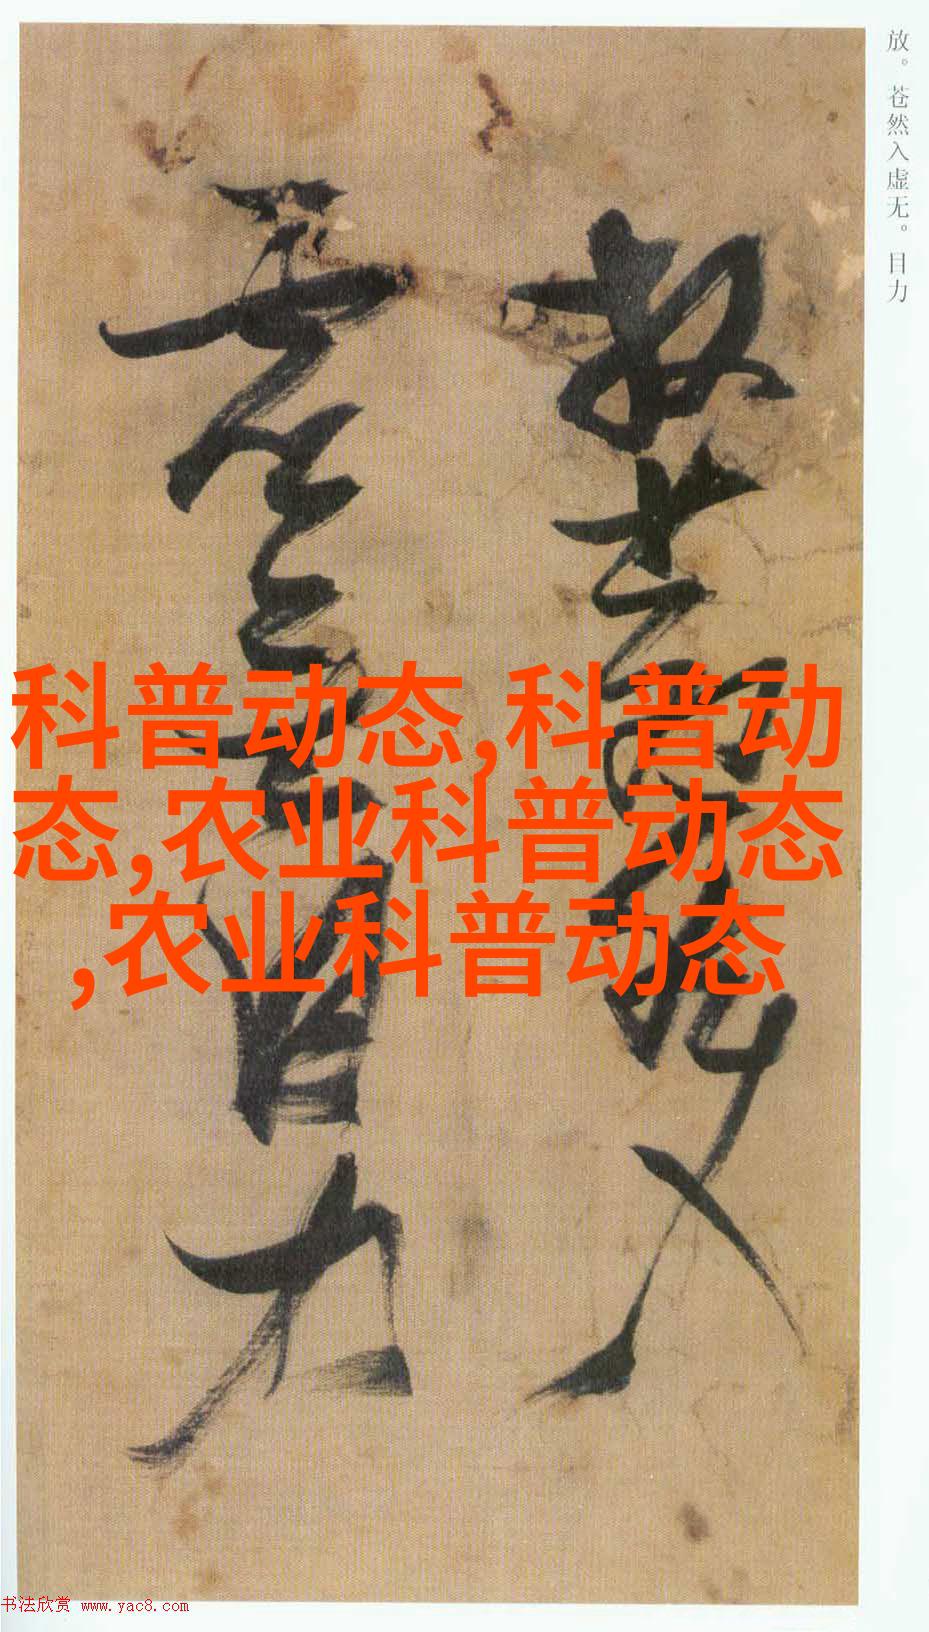 放。苍然入虚无。目力
放苍然入
虚无目力
科普动态,科普动
态,农业科普动态
,农业科普动态
书法欣赏 www.yac8.com